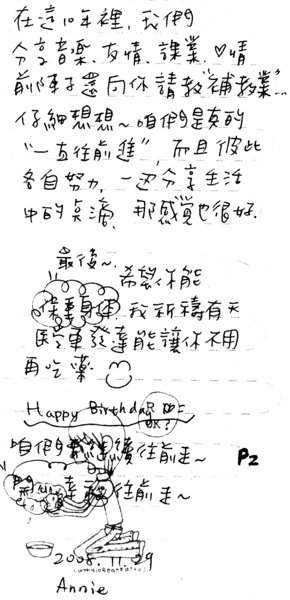 在這10年裡, 我們
分享音樂、友情、課業、♡情
前陣子還向你請教"補教業"…
仔細想想~咱們是真的
"一直往前進", 而且彼此
各自努力, 一边分享生活
中的点滴, 那感覺也很好.
最後~.
希望你能
保重身体, 我祈禱有天
医藥發達能讓你不用
再吃藥.
Happy Birthday
OK?
咱們 繼續往前走~
P2
開心 往前走~
2008.11.29
Annie